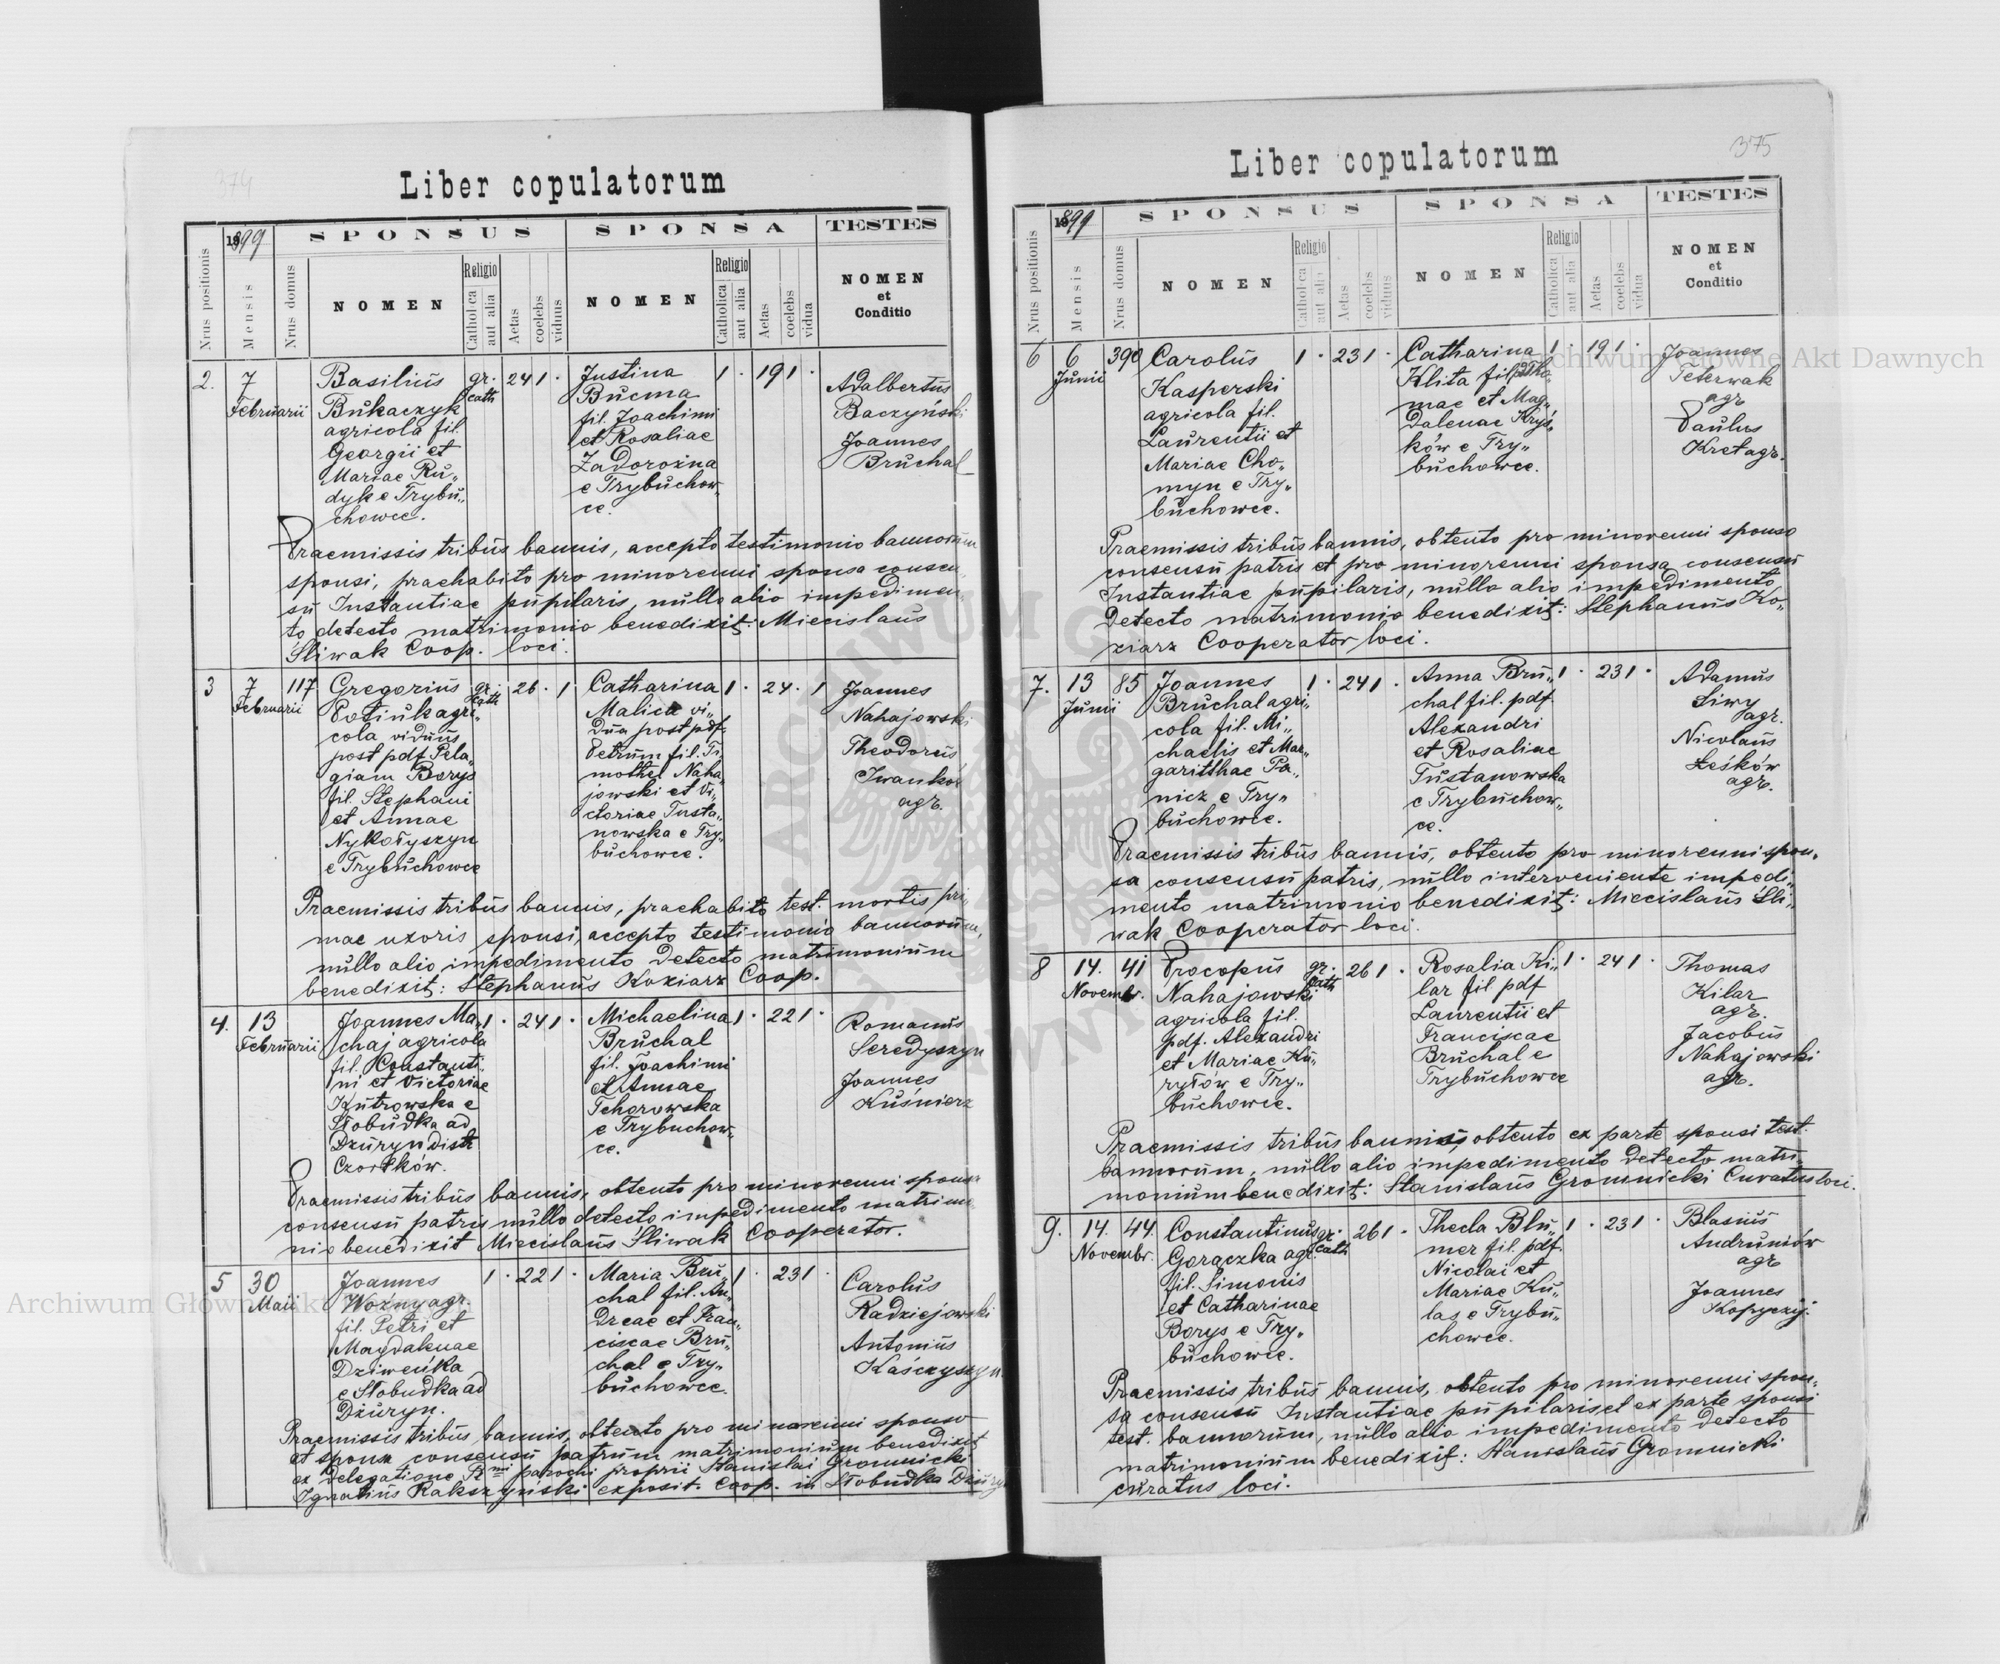 374
Liber copulatorum
1899
SPONSUS
SPONSA
TESTES
Nrus positionis
Mensis
Nrus domus
NOMEN
Religio
Catholica
aut alia
Aetas
coelebs
viduus
NOMEN
Religio
Catholica
aut alia
Aetas
coelebs
vidua
NOMEN
et
Conditio
2. 7 Februarii
Basilius
Bukaczyk
agricola fil.
Georgii et
Mariae Ru„
dyk e Trybu„
chowce.
gr. cath
24 1 ·
Justina
Bucma
fil. Joachimi
et Rosaliae
Zadorożna
e Trybuchow„
ce.
1 · 19 1 ·
Adalbertus
Baczyński
Joannes
Bruchal
Praemissis tribus bannis, accepto testimonio bannorum
sponsi, praehabito pro minorenni sponsa consen„
su Instantiae pupilaris, nullo alio impedimen„
to detecto matrimonio benedixit: Miecislaus
Śliwak Coop. loci.
3 7 Februarii 117
Gregorius
Potiuk agri„
cola viduus
post pdf. Pela„
giam Borys
fil. Stephani
et Annae
Nykołyszyn
e Trybuchowce
gr. cath
26 · 1
Catharina
Malica vi„
dua post pdf.
Petrum fil. Ti„
mothei Naha„
jowski et Vi„
ctoriae Tusta„
nowska e Try„
buchowce.
1 · 24 · 1
Joannes
Nahajowski
Theodorus
Iwanków
agr.
Praemissis tribus bannis, praehabito test. mortis pri„
mae uxoris sponsi, accepto testimonio bannorum,
nullo alio impedimento detecto matrimonium
benedixit: Stephanus Koziarz Coop.
4. 13 Februarii
Joannes Ma„
chaj agricola
fil. Constanti„
ni et Victoriae
Kutrowska e
Słobudka ad
Dżuryn distr.
Czortków.
1 · 24 1 ·
Michaelina
Bruchal
fil. Joachimi
et Annae
Tchorowska
e Trybuchow„
ce.
1 · 22 1 ·
Romanus
Seredyszyn
Joannes
Kuśnierz
Praemissis tribus bannis, obtento pro minorenni sponsa
consensu patris nullo detecto impedimento matrimo„
nio benedixit Miecislaus Śliwak Cooperator.
5 30 Maii
Joannes
Woźny agr.
fil. Petri et
Magdalenae
Dziweńka
e Słobudka ad
Dżuryn.
1 · 22 1 ·
Maria Bru„
chal fil. An„
dreae et Fran„
ciscae Bru„
chal e Try„
buchowce.
1 · 23 1 ·
Carolus
Radziejowski
Antonius
Kaśczyszyn
Praemissis tribus bannis, obtento pro minorenni sponso
et sponsa consensu patrum matrimonium benedixit
ex delegatione Rmi parochi proprii Stanislai Gromnicki
Ignatius Rakszyński exposit. Coop. in Słobudka Dżuryn
375
Liber copulatorum
1899
SPONSUS
SPONSA
TESTES
Nrus positionis
Mensis
Nrus domus
NOMEN
Religio
Catholica
aut alia
Aetas
coelebs
viduus
NOMEN
Religio
Catholica
aut alia
Aetas
coelebs
vidua
NOMEN
et
Conditio
6 6 Junii 390
Carolus
Kasperski
agricola fil.
Laurentii et
Mariae Cho„
myn e Try„
buchowce.
1 · 23 1 ·
Catharina
Klita fil. pdf. Tho„
mae et Mag„
dalenae Kryś„
ków e Try„
buchowce.
1 · 19 1 ·
Joannes
Teterwak
agr
Paulus
Kret agr.
Praemissis tribus bannis, obtento pro minorenni sponso
consensu patris et pro minorenni sponsa consensu
Instantiae pupilaris, nullo alio impedimento
detecto matrimonio benedixit: Stephanus Ko„
ziarz Cooperator loci.
7. 13 Junii 85
Joannes
Bruchal agri„
cola fil. Mi„
chaelis et Mar„
garitthae Pa„
nicz e Try„
buchowce.
1 · 24 1 ·
Anna Bru„
chal fil. pdf.
Alexandri
et Rosaliae
Tustanowska
e Trybuchow„
ce.
1 · 23 1 ·
Adamus
Siwy
agr.
Nicolaus
Leśków
agr.
Praemissis tribus bannis, obtento pro minorenni spon„
sa consensu patris, nullo interveniente impedi„
mento matrimonio benedixit: Miecislaus Śli„
wak Cooperator loci.
8 14. Novembr. 41
Procopus
Nahajowski
agricola fil.
pdf. Alexandri
et Mariae Ku„
ryłów e Try„
buchowce.
gr. cath
26 1 ·
Rosalia Ki„
lar fil pdf
Laurentii et
Franciscae
Bruchal e
Trybuchowce
1 · 24 1 ·
Thomas
Kilar
agr.
Jacobus
Nahajowski
agr.
Praemissis tribus bannis, obtento ex parte sponsi test.
bannorum, nullo alio impedimento detecto matri„
monium benedixit: Stanislaus Gromnicki Curatus loci.
9. 14. Novembr. 44.
Constantinus
Gorączka agr.
fil. Simonis
et Catharinae
Borys e Try„
buchowce.
gr. cath
26 1 ·
Thecla Blu„
mer fil. pdf.
Nicolai et
Mariae Ku„
las e Trybu„
chowce.
1 · 23 1 ·
Blasius
Andruniów
agr
Joannes
Kopyczyj.
Praemissis tribus bannis, obtento pro minorenni spon„
sa consensu Instantiae pupilaris et ex parte sponsi
test. bannorum, nullo alio impedimento detecto
matrimonium benedixit: Stanislaus Gromnicki
curatus loci.
Archiwum Główne Akt Dawnych